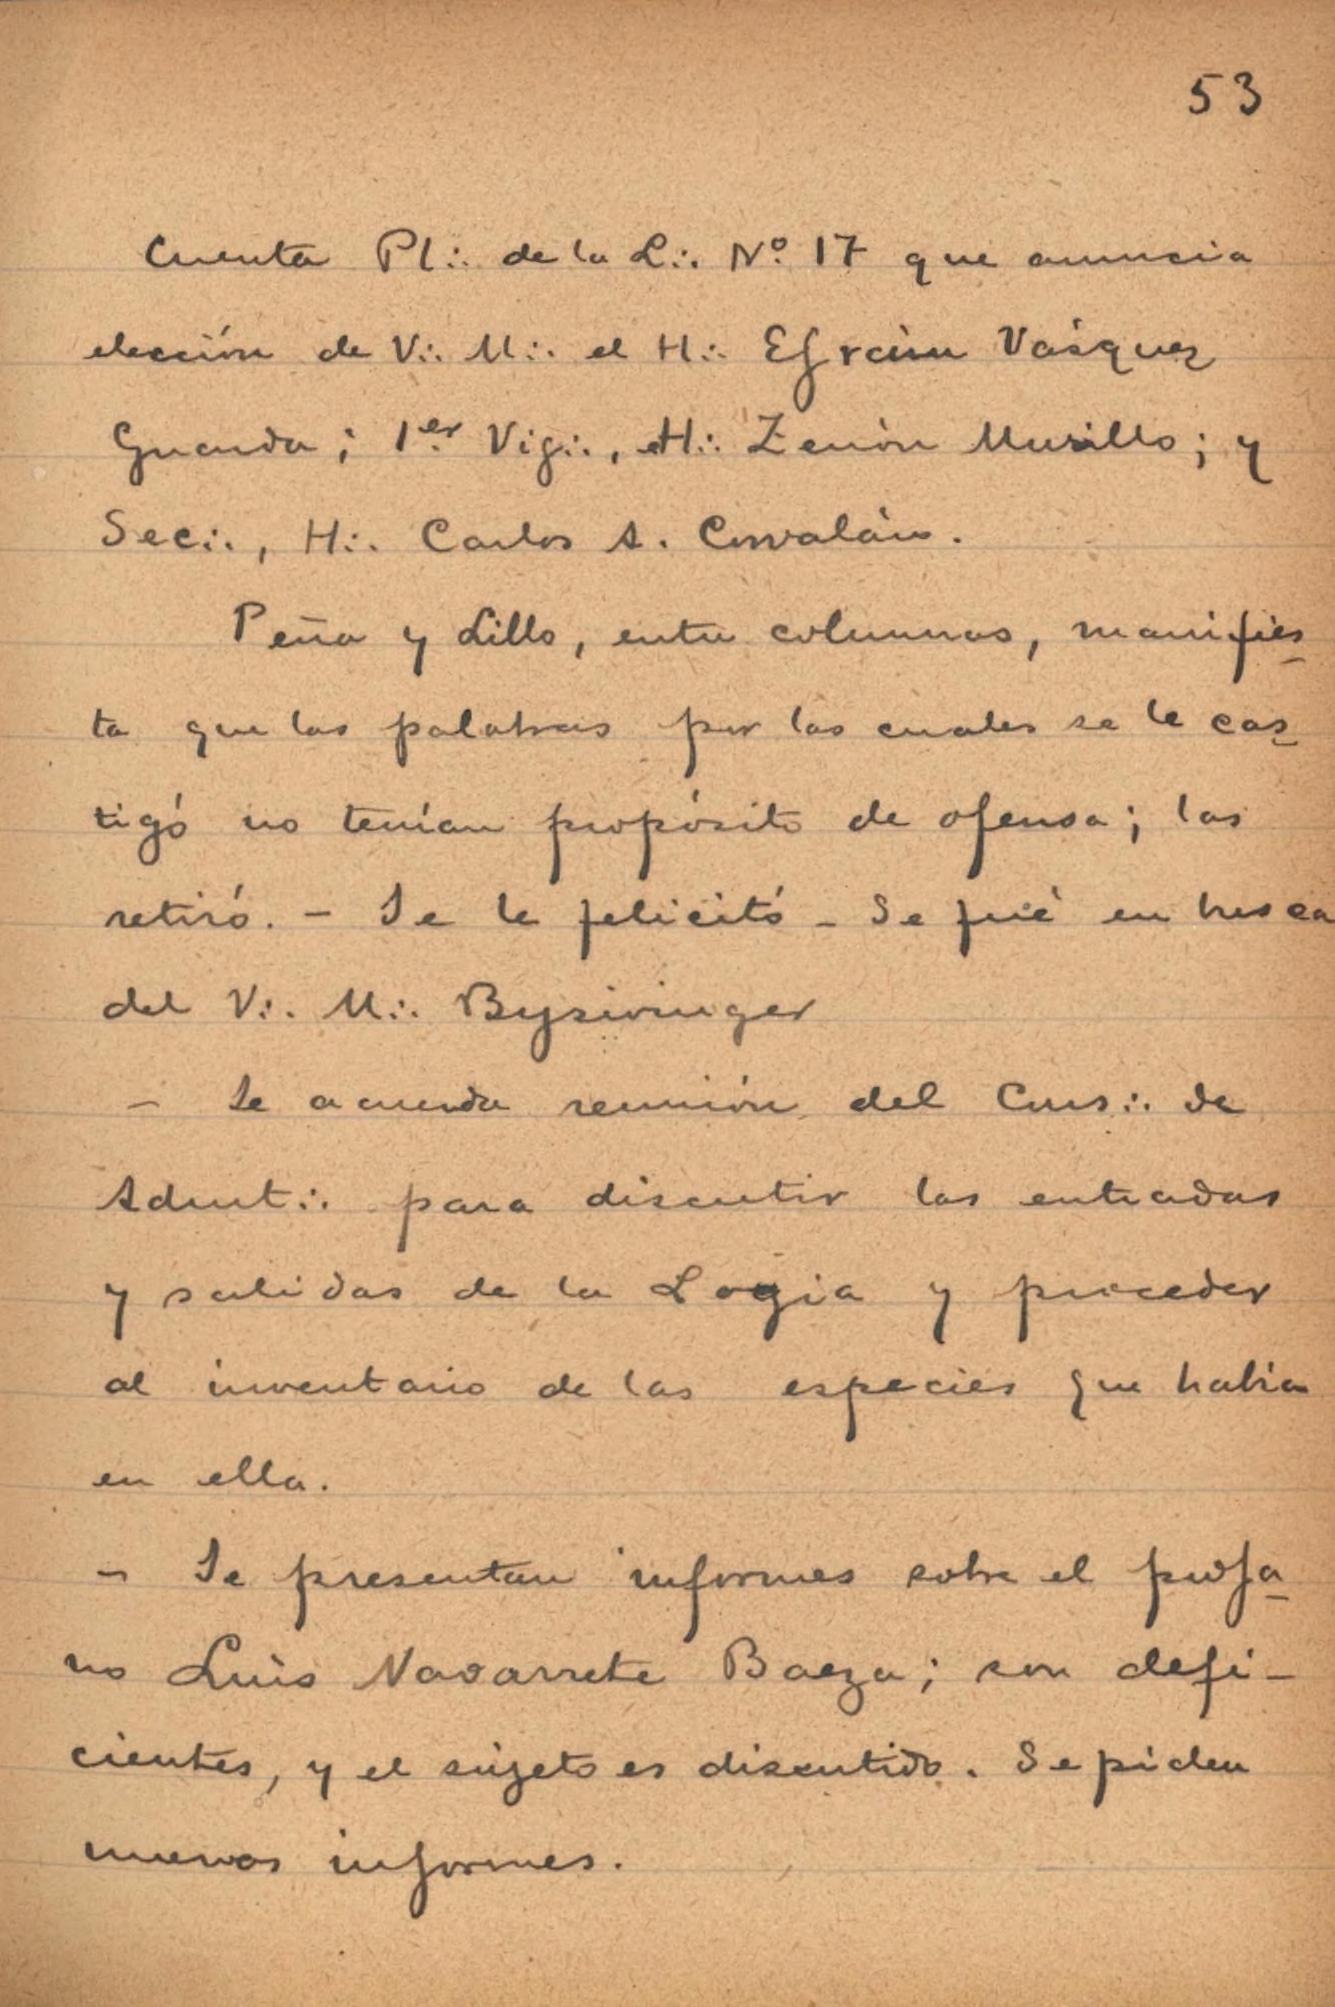 53
Cuenta Pl∴ de la L∴ Nº 17 que anuncia
elección de V∴ M∴ el H∴ Efraím Vásquez
Guarda; 1er Vig∴, el H∴ Zenón Murillo; y
Sec∴, H∴ Carlos A. Corvalán.
Peña y Lillo, entre columnas, manifies-
ta que las palabras por las cuales se le cas-
tigó no tenían propósito de ofensa; las
retiró. - Se le felicitó - Se fué en busca
del V∴ M∴
- Se acuerda reunión del Cons∴ de
Admt∴ para discutir las entradas
y salidas de la Logia y proceder
al inventario de las especies que había
en ella.
- Se presentan informes sobre el profa-
no Luis Navarrete Baeza; son defi-
cientes, y el sujeto es discutido. Se piden
nuevos informes.